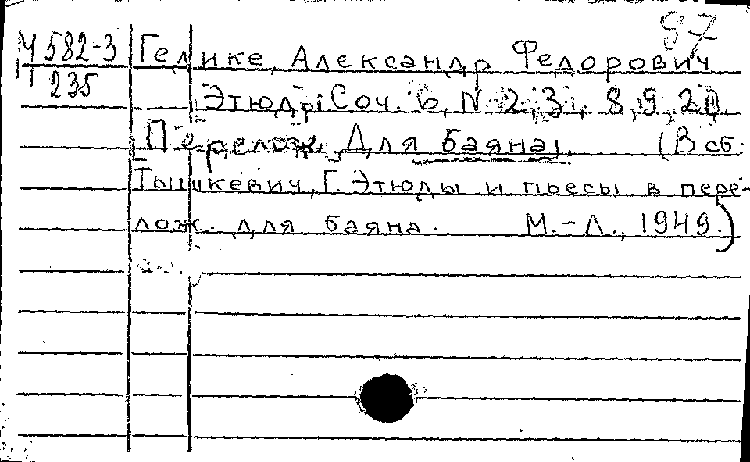 97
Ч 582-3
235
Гелике, Александр Федорович
Этюды: Соч. 6, N 2, 3, 8, 9, 20
Перелож. Для баяна.
(В сб.
Тышкевич, Г. Этюды и пьесы в пере-
лож. для баяна. М.-Л., 1949.)